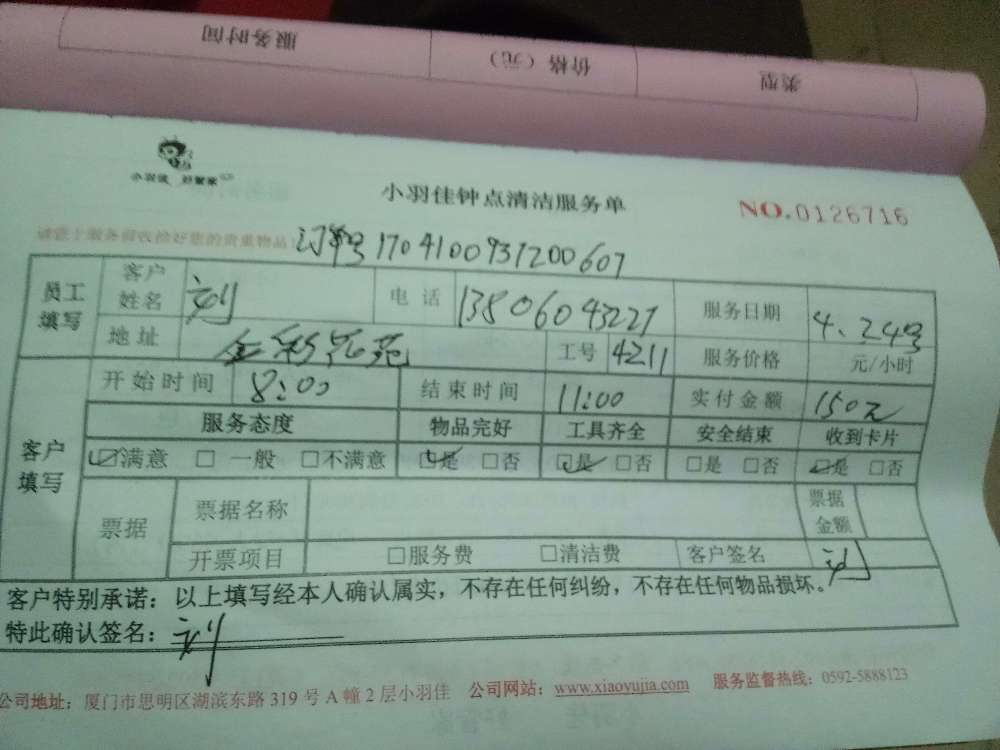 服务时间 价格（元） 类型
小羽佳 好管家
小羽佳钟点清洁服务单
NO.0126716
请您于服务前收拾好您的贵重物品！
订单号1704100931200607
员工填写 客户姓名 刘 电话 13806043227 服务日期 4.24号
地址 金彩花苑 工号 4211 服务价格 元/小时
客户填写 开始时间 8:00 结束时间 11:00 实付金额 150元
服务态度 物品完好 工具齐全 安全结束 收到卡片
☑满意 □一般 □不满意 ☑是 □否 ☑是 □否 □是 □否 ☑是 □否
票据 票据名称 票据金额
开票项目 □服务费 □清洁费 客户签名 刘
客户特别承诺：以上填写经本人确认属实，不存在任何纠纷，不存在任何物品损坏。
特此确认签名：刘
公司地址：厦门市思明区湖滨东路319号A幢2层小羽佳 公司网站：www.xiaoyujia.com 服务监督热线：0592-5888123